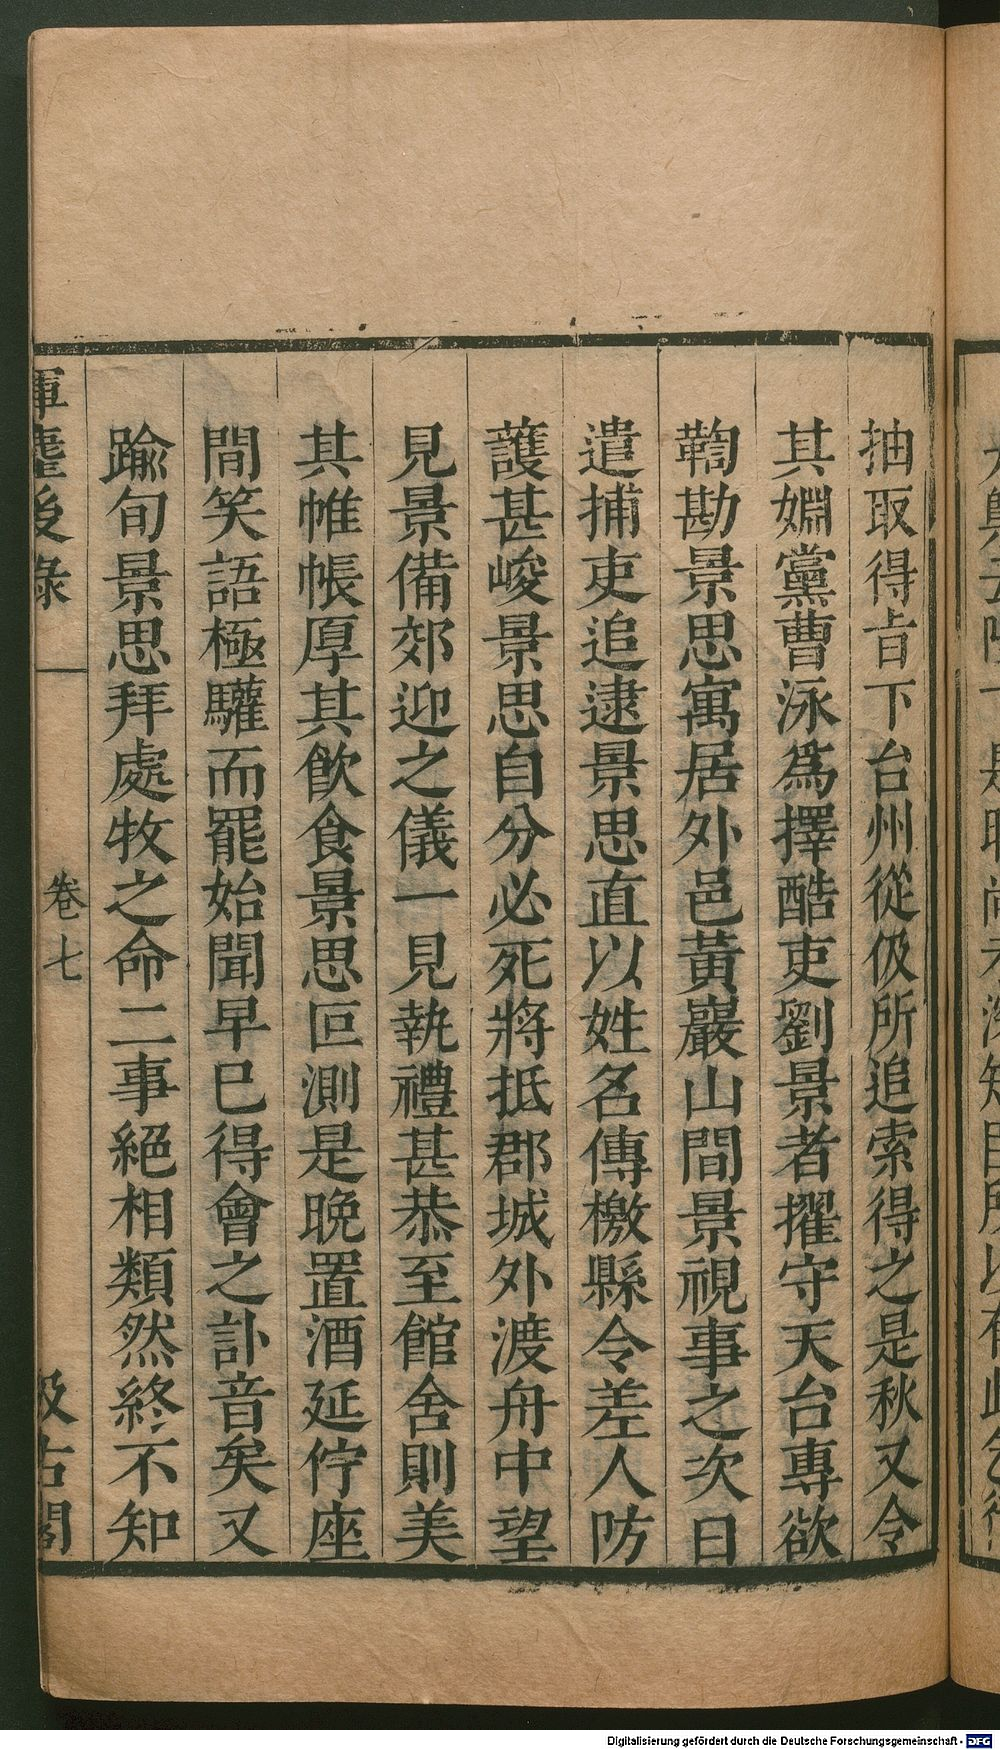 抽取得㫖下台州從伋所追索得之是秋又令
其婣黨曹泳爲擇酷吏劉景者擢守天台專欲
鞫勘景思寓居外邑黃巖山間景視事之次日
遣捕吏追逮景思直以姓名傳檄縣令差人防
護甚峻景思自分必死將抵郡城外渡舟中望
見景備郊迎之儀一見執禮甚恭至館舍則美
其帷帳厚其飮食景思叵測是晩置酒延佇座
間笑語極驩而罷始聞早已得會之訃音矣又
踰旬景思拜處牧之命二事絕相類然終不知
揮麈後錄
卷七
汲古閣
Digitalisierung gefördert durch die Deutsche Forschungsgemeinschaft - DFG